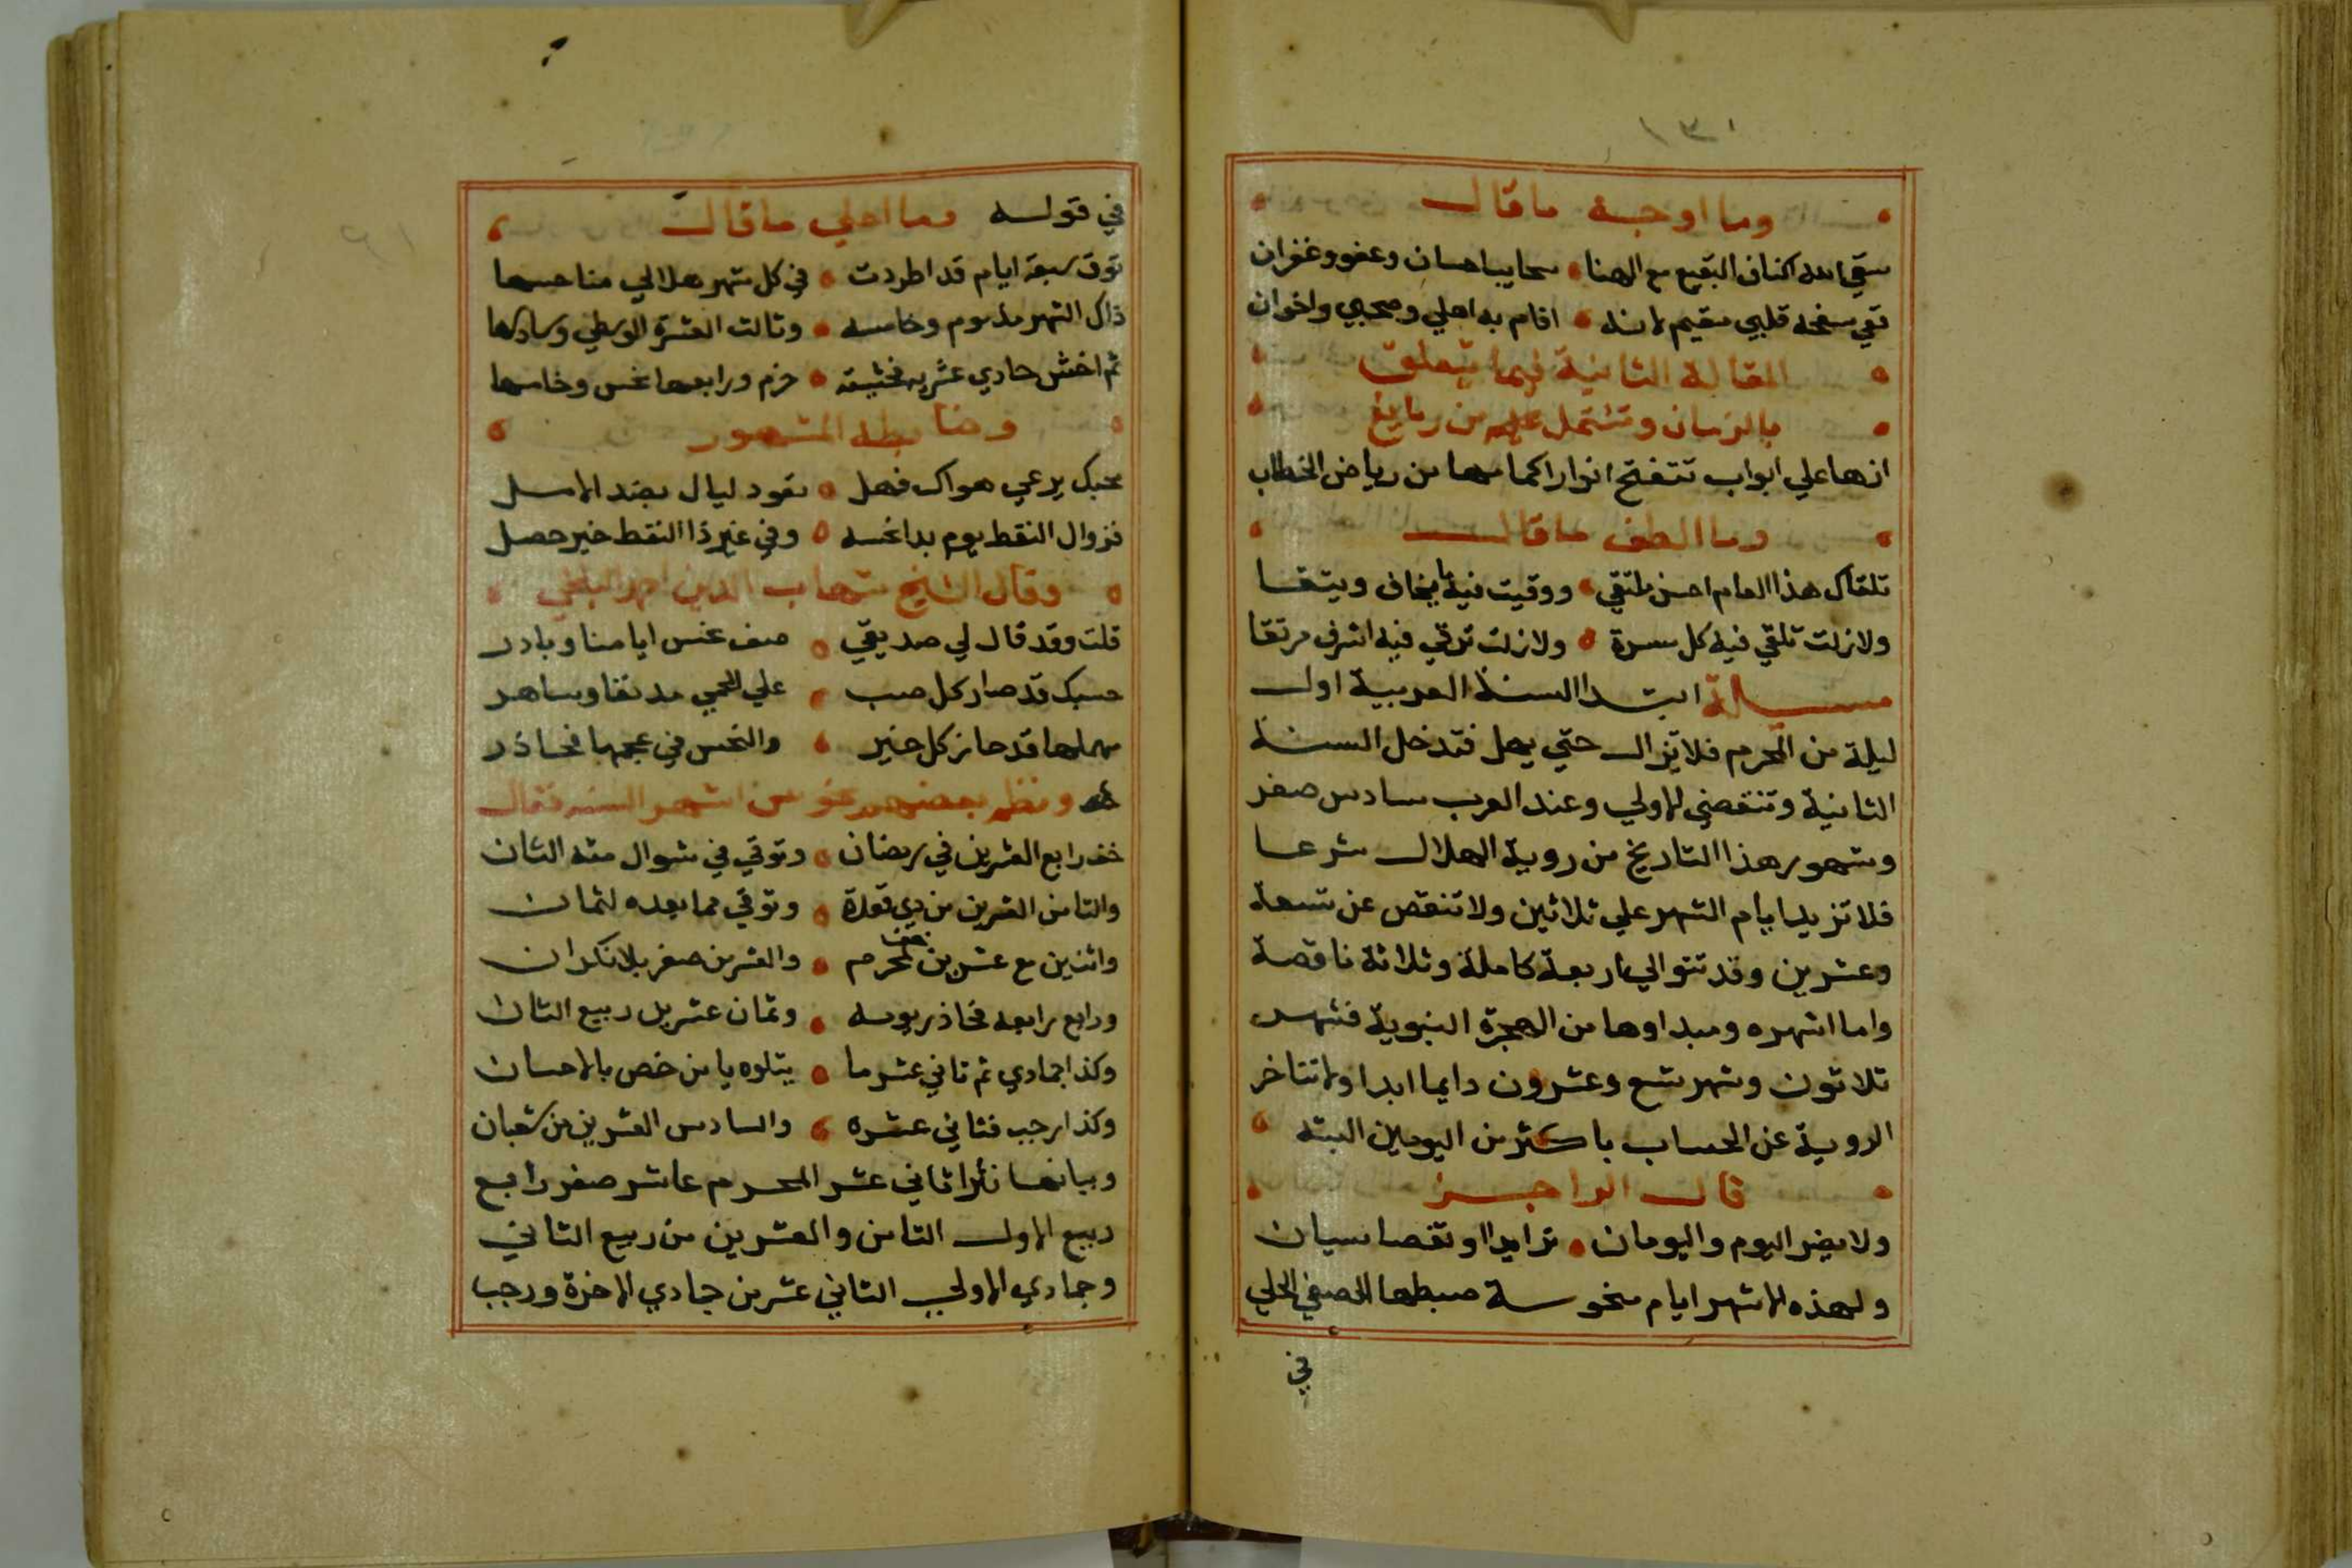 وما اوجه ما قال
سقي الله اكناف البقيع مع الهنا سحايبا احسان وعفو وغفران
ففي سفحه قلبي مقيم لانه اقام به اهلي وصحبي واخوان
المقالة الثانية فيما يتعلق
بالزمان وتشتمل علي من
انها علي ابواب تتفتح انوار اكمامها من رياض الخطاب
وما الطف ما قال
تلقاك هذا العام احسن ملتقي ووقيت فيه ما يخاف ويتقا
ولا زلت تلقي فيه كل مسرة ولا زلت ترقي فيه اشرف مرتقا
مسالة ابتدا السنة العربية اول
ليلة من المحرم فلا تزال حتي يهل فتدخل السنة
الثانية وتنقضي الاولي وعند العرب سادس صفر
وشهور هذا التاريخ من روية الهلال شرعا
فلا تزيد ايام الشهر علي ثلاثين ولا تنقص عن تسعة
وعشرين وقد تتوالي اربعة كاملة وثلاثة ناقصة
واما اشهره ومبداوها من الهجرة النبوية فشهر
ثلاثون وشهر تسع وعشرون دايما ابدا ولا تتاخر
الروية عن الحساب باكثر من اليومين البته
قال الراجز
ولا يضر اليوم واليومان تزايدا او نقصا سيان
ولهذه الاشهر ايام منحوسة ضبطها الصفي الحلي
في
في قوله وما احلي ما قال
توق سبعة ايام قد اطردت في كل شهر هلالي مناحسها
ذاك الشهر مذموم وخامسه وثالث العشرة الوسطي وسادسها
ثم اخش حادي عشريه فخشيته حزم ورابعها نحس وخامسها
وضابطه المشهور
محبك يرعي هواك فهل تعود ليال بضد الامل
فزوال النقط يوم بدا نحسه وفي غير ذا النقط خير حصل
وقال الشيخ شهاب الدين احمد
قلت وقد قال لي صديقي صف نحس ايامنا وبادر
حسبك قد صار كل صب علي اللحمي مدنفا وساهر
مهملها قد حاز كل خير والنحس في عجمها فحاذر
ونظم بعضهم نحوس اشهر السنه فقال
خف رابع العشرين في رمضان وتوقي في شوال منه الثان
والثامن العشرين من ذي قعدة وتوقي مما بعده لثمان
واثنين مع عشرين خف لمحرم والعشر من صفر بلا نكران
ورابع رابعه فحاذر يومه وثمان عشر بل ربيع الثان
وكذا جمادي ثم ثاني عشر ما يتلوه يا من خص بالاحسان
وكذا رجب فثاني عشره والسادس العشرين من شعبان
وبيانها نثرا ثاني عشر المحرم عاشر صفر رابع
ربيع الاول الثامن والعشرين من ربيع الثاني
وجمادي الاولي الثاني عشر من جمادي الاخرة ورجب